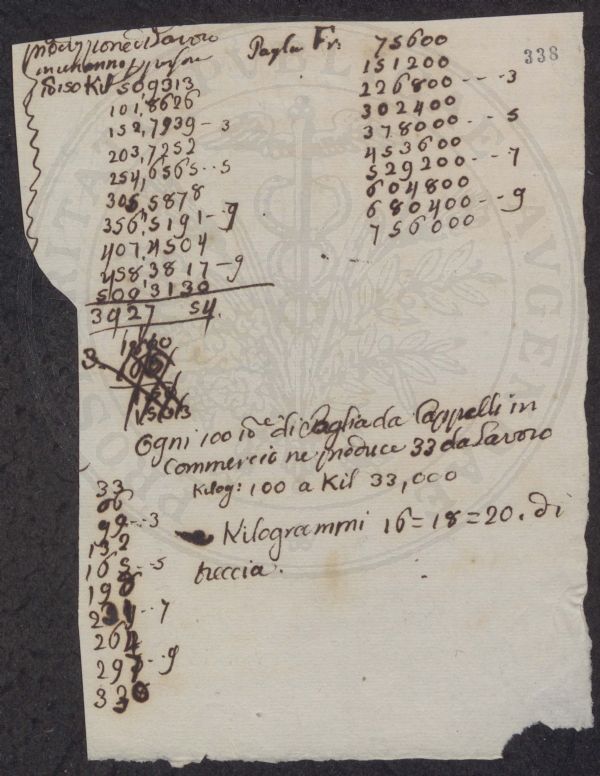 produzione di Lavoro
in un anno
Kil 50,9313
101,8626
152,7939--3
203,7252
254,6565--5
305,5878
356,5191--9
407,4504
458,3817--9
509,3130
3927 54.
3
Paglia Fr: 75600
151200
226800---3
302400
378000---5
453600
529200---7
604800
680400---9
756000
338
Ogni 100 di Paglia da Cappelli in
Commercio ne produce 33 da Lavoro
Kilog: 100 a Kil 33,000
Kilogrammi 16=18=20. di
treccia.
33
66
99--3
132
165--5
198
231--7
264
297--9
330